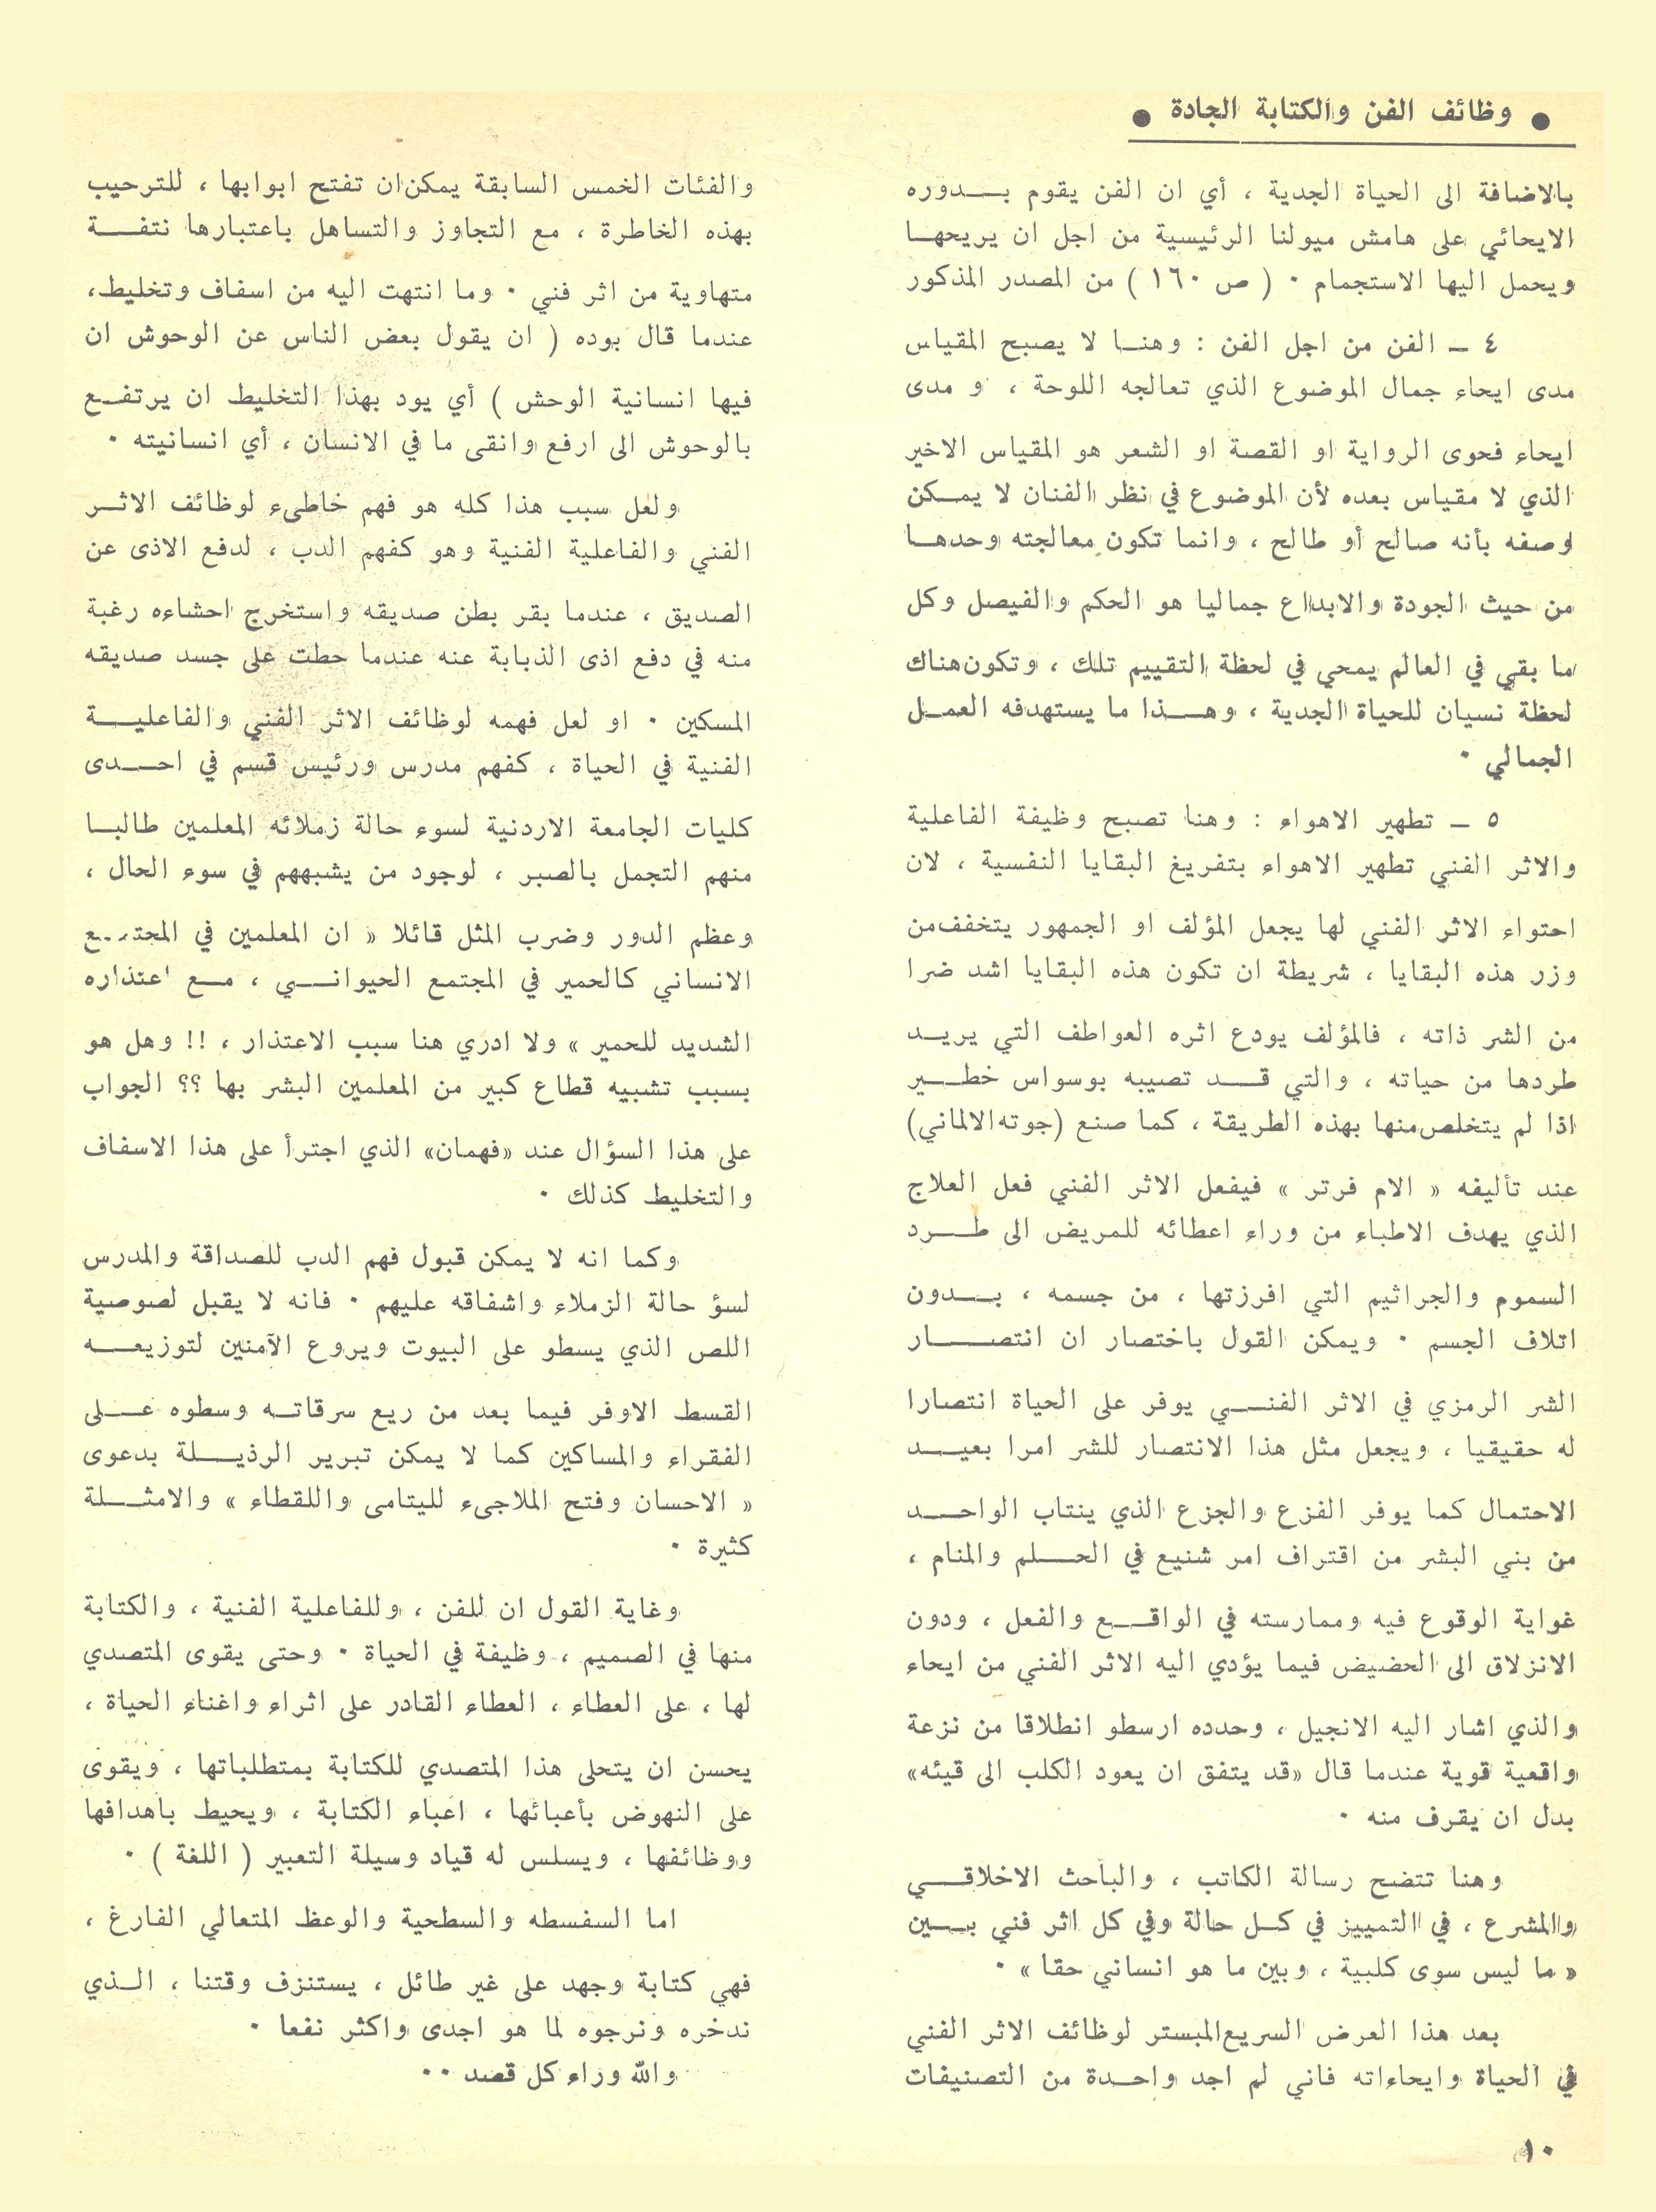 ● وظائف الفن والكتابة الجادة ●
بالاضافة الى الحياة الجدية ، أي ان الفن يقوم بـــدوره
الايحائي على هامش ميولنا الرئيسية من اجل ان يريحهـا
ويحمل اليها الاستجمام ٠ ( ص ١٦٠ ) من المصدر المذكور
٤ ــ الفن من اجل الفن : وهنـا لا يصبح المقياس
مدى ايحاء جمال الموضوع الذي تعالجه اللوحة ، و مدى
ايحاء فحوى الرواية او القصة او الشعر هو المقياس الاخير
الذي لا مقياس بعده لأن الموضوع في نظر الفنان لا يمـكن
وصفه بأنه صالح أو طالح ، وانما تكون معالجته وحدهـا
من حيث الجودة والابداع جماليا هو الحكم والفيصل وكل
ما بقي في العالم يمحي في لحظة التقييم تلك ، وتكون هناك
لحظة نسيان للحياة الجدية ، وهــذا ما يستهدفه العمـل
الجمالي ٠
٥ ــ تطهير الاهواء : وهنا تصبح وظيفة الفاعلية
والاثر الفني تطهير الاهواء بتفريغ البقايا النفسية ، لان
احتواء الاثر الفني لها يجعل المؤلف او الجمهور يتخفف من
وزر هذه البقايا ، شريطة ان تكون هذه البقايا اشد ضرا
من الشر ذاته ، فالمؤلف يودع اثره العواطف التي يريـد
طردها من حياته ، والتي قــد تصيبه بوسواس خطـير
اذا لم يتخلص منها بهذه الطريقة ، كما صنع (جوته الالماني)
عند تأليفه « الام فرتر » فيفعل الاثر الفني فعل العلاج
الذي يهدف الاطباء من وراء اعطائه للمريض الى طــرد
السموم والجراثيم التي افرزتها ، من جسمه ، بــدون
اتلاف الجسم ٠ ويمكن القول باختصار ان انتصـــار
الشر الرمزي في الاثر الفنــي يوفر على الحياة انتصارا
له حقيقيا ، ويجعل مثل هذا الانتصار للشر امرا بعيــد
الاحتمال كما يوفر الفزع والجزع الذي ينتاب الواحــد
من بني البشر من اقتراف امر شنيع في الحــلم والمنام ،
غواية الوقوع فيه وممارسته في الواقــع والفعل ، ودون
الانزلاق الى الحضيض فيما يؤدي اليه الاثر الفني من ايحاء
والذي اشار اليه الانجيل ، وحدده ارسطو انطلاقا من نزعة
واقعية قوية عندما قال «قد يتفق ان يعود الكلب الى قيئه»
بدل ان يقرف منه ٠
وهنا تتضح رسالة الكاتب ، والباحث الاخلاقــي
والمشرع ، في التمييز في كـل حالة وفي كل اثر فني بــين
« ما ليس سوى كلبية ، وبين ما هو انساني حقا » ٠
بعد هذا العرض السريع المبستر لوظائف الاثر الفني
في الحياة وايحاءاته فاني لم اجد واحـدة من التصنيفات
والفئات الخمس السابقة يمكن ان تفتح ابوابها ، للترحيب
بهذه الخاطرة ، مع التجاوز والتساهل باعتبارها نتفـــة
متهاوية من اثر فني ٠ وما انتهت اليه من اسفاف وتخليط،
عندما قال بوده ( ان يقول بعض الناس عن الوحوش ان
فيها انسانية الوحش ) أي يود بهذا التخليط ان يرتفـع
بالوحوش الى ارفع وانقى ما في الانسان ، أي انسانيته ٠
ولعل سبب هذا كله هو فهم خاطىء لوظائف الاثـر
الفني والفاعلية الفنية وهو كفهم الدب ، لدفع الاذى عن
الصديق ، عندما بقر بطن صديقه واستخرج احشاءه رغبة
منه في دفع اذى الذبابة عنه عندما حطت على جسد صديقه
المسكين ٠ او لعل فهمه لوظائف الاثر الفني والفاعليــة
الفنية في الحياة ، كفهم مدرس ورئيس قسم في احــدى
كليات الجامعة الاردنية لسوء حالة زملائه المعلمين طالبـا
منهم التجمل بالصبر ، لوجود من يشبههم في سوء الحال ،
وعظم الدور وضرب المثل قائلا « ان المعلمين في المجتمع
الانساني كالحمير في المجتمع الحيوانــي ، مـع اعتذاره
الشديد للحمير » ولا ادري هنا سبب الاعتذار ، !! وهل هو
بسبب تشبيه قطاع كبير من المعلمين البشر بها ؟؟ الجواب
على هذا السؤال عند «فهمان» الذي اجترأ على هذا الاسفاف
والتخليط كذلك ٠
وكما انه لا يمكن قبول فهم الدب للصداقة والمدرس
لسؤ حالة الزملاء واشفاقه عليهم ٠ فانه لا يقبل لصوصية
اللص الذي يسطو على البيوت ويروع الآمنين لتوزيعـــه
القسط الاوفر فيما بعد من ريع سرقاتـه وسطوه عــلى
الفقراء والمساكين كما لا يمكن تبرير الرذيــلة بدعوى
« الاحسان وفتح الملاجىء لليتامى واللقطاء » والامثــلة
كثيرة ٠
وغاية القول ان للفن ، وللفاعلية الفنية ، والكتابة
منها في الصميم ، وظيفة في الحياة ٠ وحتى يقوى المتصدي
لها ، على العطاء ، العطاء القادر على اثراء واغناء الحياة ،
يحسن ان يتحلى هذا المتصدي للكتابة بمتطلباتها ، ويقوى
على النهوض بأعبائها ، اعباء الكتابة ، ويحيط باهدافها
ووظائفها ، ويسلس له قياد وسيلة التعبير ( اللغة ) ٠
اما السفسطه والسطحية والوعظ المتعالي الفارغ ،
فهي كتابة وجهد على غير طائل ، يستنزف وقتنا ، الـذي
ندخره ونرجوه لما هو اجدى واكثر نفعا ٠
والله وراء كل قصد ٠٠
١٠